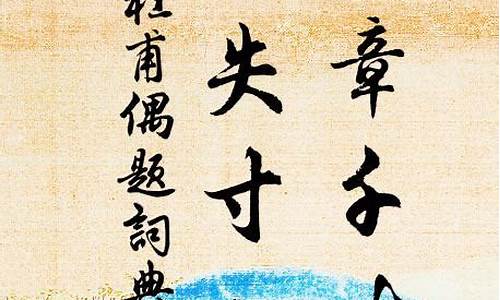 章千
失寸
杜甫偶題詞典